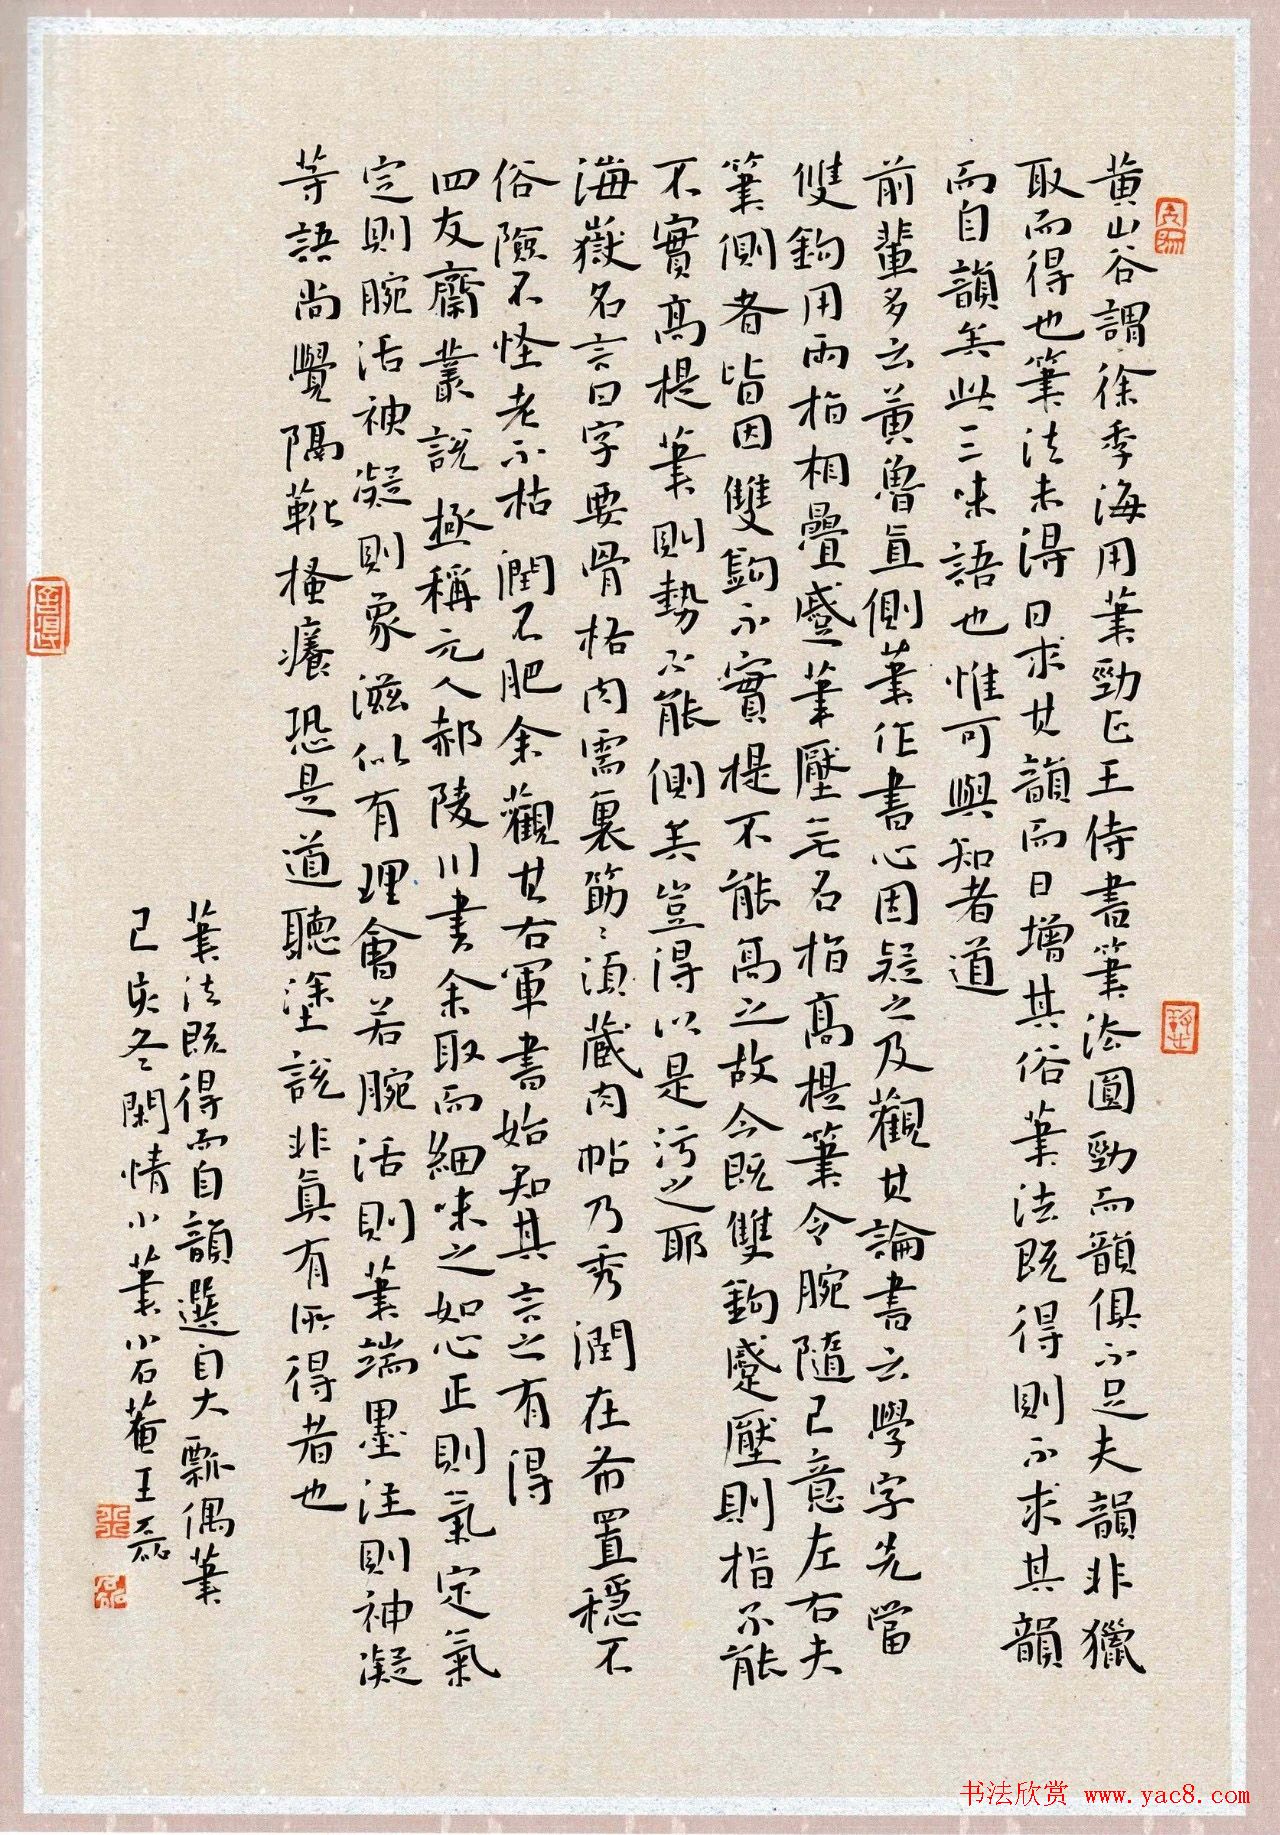 黄山谷謂徐季海用筆勁正王侍書筆法圓勁而韻俱不足夫韻非獵
取而得也筆法未得日求其韻而日增其俗筆法既得則不求其韻
而自韻矣此三味語也惟可與知者道
前輩多云黄魯直側筆作書心因疑之及觀其論書云學字先當
雙鉤用兩指相疊蹙筆壓無名指高提筆令腕隨己意左右夫
筆側者皆因雙鉤不實提不能高之故今既雙鉤蹙壓則指不能
不實高提筆則勢不能側矣豈得以是污之耶
海嶽名言曰字要骨格肉需裹筋筋須藏肉帖乃秀潤在布置穩不
俗險不怪老不枯潤不肥余觀其右軍書始知其言之有得
四友齋叢説極稱元人郝陵川書余取而細味之如心正則氣定氣
定則腕活神凝則象滋似有理會若腕活則筆端墨注則神凝
等語尚覺隔靴搔癢恐是道聽塗説非真有所得者也
筆法既得而自韻選自大瓢偶筆
己亥冬閑情小筆小石菴王磊
書法欣赏 www.yac8.com